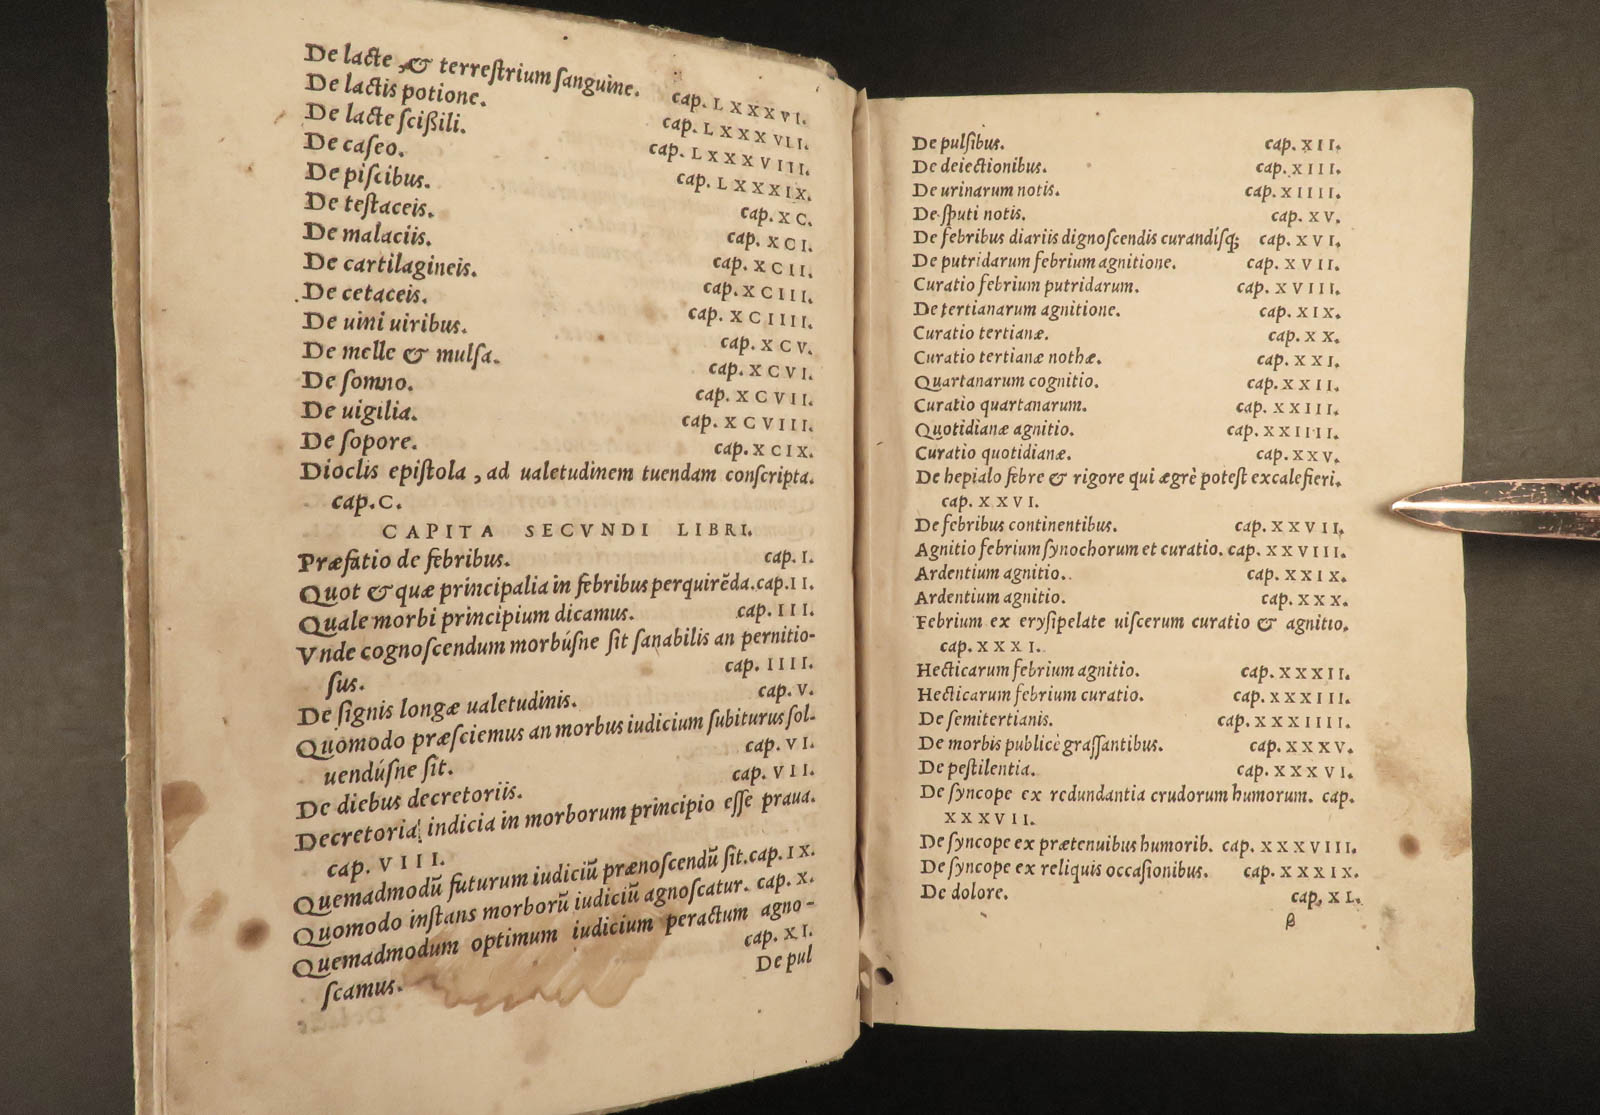 De lacte, & terrestrium sanguine. cap. LXXXVI.
De lactis potione. cap. LXXXVII.
De lacte scißili. cap. LXXXVIII.
De caseo. cap. LXXXIX.
De piscibus. cap. XC.
De testaceis. cap. XCI.
De malaciis. cap. XCII.
De cartilagineis. cap. XCIII.
De cetaceis. cap. XCIIII.
De uini uiribus. cap. XCV.
De melle & mulsa. cap. XCVI.
De somno. cap. XCVII.
De uigilia. cap. XCVIII.
De sopore. cap. XCIX.
Dioclis epistola, ad ualetudinem tuendam conscripta.
cap. C.
CAPITA SECVNDI LIBRI.
Præfatio de febribus. cap. I.
Quot & quæ principalia in febribus perquirẽda. cap. II.
Quale morbi principium dicamus. cap. III.
Vnde cognoscendum morbúsne sit sanabilis an pernitio-
sus. cap. IIII.
De signis longæ ualetudinis. cap. V.
Quomodo præsciemus an morbus iudicium subiturus sol-
uendúsne sit. cap. VI.
De diebus decretoriis. cap. VII.
Decretoria indicia in morborum principio esse praua.
cap. VIII.
Quemadmodũ futurum iudiciũ prænoscendũ sit. cap. IX.
Quomodo instans morborũ iudiciũ agnoscatur. cap. X.
Quemadmodum optimum iudicium peractum agno-
scamus. cap. XI.
De pul
De pulsibus. cap. XII.
De deiectionibus. cap. XIII.
De urinarum notis. cap. XIIII.
De sputi notis. cap. XV.
De febribus diariis dignoscendis curandísq; cap. XVI.
De putridarum febrium agnitione. cap. XVII.
Curatio febrium putridarum. cap. XVIII.
De tertianarum agnitione. cap. XIX.
Curatio tertianæ. cap. XX.
Curatio tertianæ nothæ. cap. XXI.
Quartanarum cognitio. cap. XXII.
Curatio quartanarum. cap. XXIII.
Quotidianæ agnitio. cap. XXIIII.
Curatio quotidianæ. cap. XXV.
De hepialo febre & rigore qui ægrè potest excalefieri.
cap. XXVI.
De febribus continentibus. cap. XXVII.
Agnitio febrium synochorum et curatio. cap. XXVIII.
Ardentium agnitio. cap. XXIX.
Ardentium agnitio. cap. XXX.
Febrium ex erysipelate uiscerum curatio & agnitio.
cap. XXXI.
Hecticarum febrium agnitio. cap. XXXII.
Hecticarum febrium curatio. cap. XXXIII.
De semitertianis. cap. XXXIIII.
De morbis publicè grassantibus. cap. XXXV.
De pestilentia. cap. XXXVI.
De syncope ex redundantia crudorum humorum. cap.
XXXVII.
De syncope ex prætenuibus humorib. cap. XXXVIII.
De syncope ex reliquis occasionibus. cap. XXXIX.
De dolore. cap. XL.
β